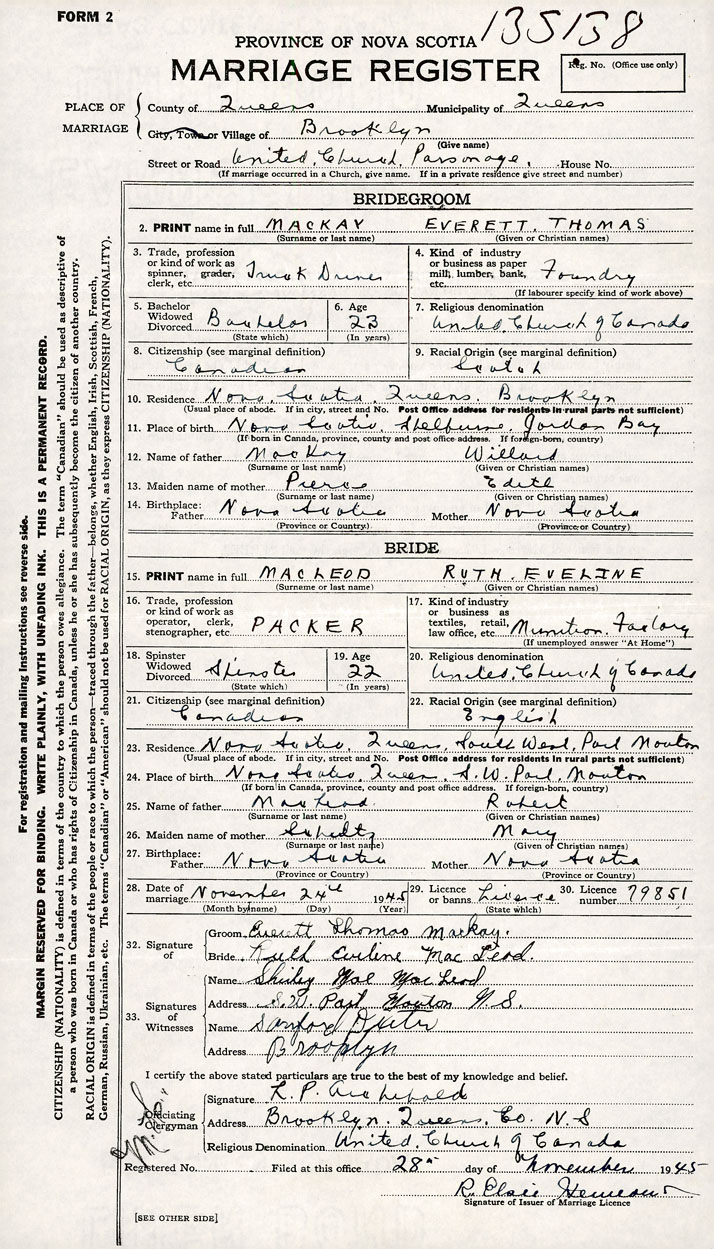 FORM 2
135138
PROVINCE OF NOVA SCOTIA
MARRIAGE REGISTER
Reg. No. (Office use only)
PLACE OF MARRIAGE
County of Queens Municipality of Queens
City, Town or Village of Brooklyn
(Give name)
Street or Road United Church Parsonage, House No.
(If marriage occurred in a Church, give name. If in a private residence give street and number)
BRIDEGROOM
2. PRINT name in full MACKAY EVERETT THOMAS
(Surname or last name) (Given or Christian names)
3. Trade, profession or kind of work as spinner, grader, clerk, etc. Truck Driver
4. Kind of industry or business as paper mill, lumber, bank, etc. Foundry
(If labourer specify kind of work above)
5. Bachelor Widowed Divorced Bachelor
(State which)
6. Age 23
(In years)
7. Religious denomination
United Church of Canada
8. Citizenship (see marginal definition)
Canadian
9. Racial Origin (see marginal definition)
Scotch
10. Residence Nova Scotia, Queens, Brooklyn
(Usual place of abode. If in city, street and No. Post Office address for residents in rural parts not sufficient)
11. Place of birth Nova Scotia, Shelburne, Jordan Bay
(If born in Canada, province, county and post office address. If foreign-born, country)
12. Name of father MacKay Willard
(Surname or last name) (Given or Christian names)
13. Maiden name of mother Pierce Edith
(Surname or last name) (Given or Christian names)
14. Birthplace: Father Nova Scotia Mother Nova Scotia
(Province or Country) (Province or Country)
BRIDE
15. PRINT name in full MACLEOD RUTH EVELINE
(Surname or last name) (Given or Christian names)
16. Trade, profession or kind of work as operator, clerk, stenographer, etc. PACKER
17. Kind of industry or business as textiles, retail, law office, etc. Munition Factory
(If unemployed answer "At Home")
18. Spinster Widowed Divorced Spinster
(State which)
19. Age 22
(In years)
20. Religious denomination
United Church of Canada
21. Citizenship (see marginal definition)
Canadian
22. Racial Origin (see marginal definition)
English
23. Residence Nova Scotia, Queens, South West, Port Mouton
(Usual place of abode. If in city, street and No. Post Office address for residents in rural parts not sufficient)
24. Place of birth Nova Scotia, Queens, S.W. Port Mouton
(If born in Canada, province, county and post office address. If foreign-born, country)
25. Name of father MacLeod Robert
(Surname or last name) (Given or Christian names)
26. Maiden name of mother Schultz Mary
(Surname or last name) (Given or Christian names)
27. Birthplace: Father Nova Scotia Mother Nova Scotia
(Province or Country) (Province or Country)
28. Date of marriage November 24th 1945
(Month by name) (Day) (Year)
29. Licence or banns Licence
(State which)
30. Licence number 79851
32. Signature of
Groom Everett Thomas Mackay.
Bride Ruth Eveline Mac Leod.
33. Signatures of Witnesses
Name Shirley Mae MacLeod
Address S.W. Port Mouton N.S.
Name Sanford Dexter
Address Brooklyn
I certify the above stated particulars are true to the best of my knowledge and belief.
Officiating Clergyman
Signature L. P. Archibald
Address Brooklyn, Queens, Co. N.S
Religious Denomination United Church of Canada
Registered No. Filed at this office 28th day of November 1945
R. Elsie
Signature of Issuer of Marriage Licence
[SEE OTHER SIDE]
For registration and mailing instructions see reverse side.
MARGIN RESERVED FOR BINDING. WRITE PLAINLY, WITH UNFADING INK. THIS IS A PERMANENT RECORD.
CITIZENSHIP (NATIONALITY) is defined in terms of the country to which the person owes allegiance. The term "Canadian" should be used as descriptive of
a person who was born in Canada or who has rights of Citizenship in Canada, unless he or she has subsequently become the citizen of another country.
RACIAL ORIGIN is defined in terms of the people or race to which the person—traced through the father—belongs, whether English, Irish, Scottish, French,
German, Russian, Ukrainian, etc. The terms "Canadian" or "American" should not be used for RACIAL ORIGIN, as they express CITIZENSHIP (NATIONALITY).